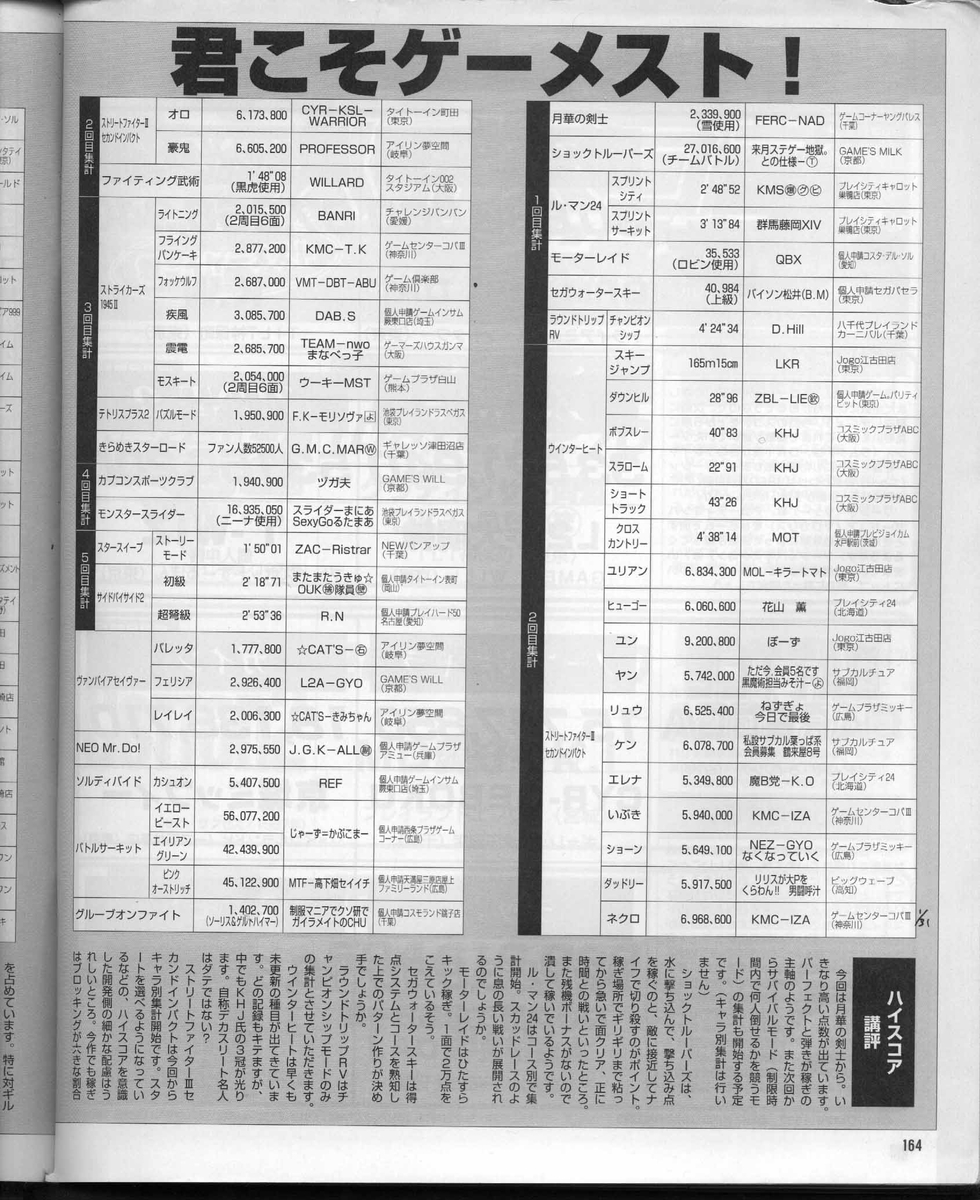 君こそゲーメスト!
1回目集計
月華の剣士 2,339,900 (雪使用) FERC-NAD ゲームコーナーヤングパレス (千葉)
ショックトルーパーズ 27,016,600 (チームバトル) 来月ステゲー地獄。との仕様-Ⓣ GAME'S MILK (京都)
ル・マン24 スプリントシティ 2'48"52 KMS プレイシティキャロット巣鴨店(東京)
スプリントサーキット 3'13"84 群馬藤岡XIV プレイシティキャロット巣鴨店(東京)
モーターレイド 35,533 (ロビン使用) QBX 個人申請コスタ・デル・ソル (愛知)
セガウォータースキー 40,984 (上級) バイソン松井(B.M) 個人申請セガパセラ (東京)
ラウンドトリップRV チャンピオンシップ 4'24"34 D.Hill 八千代プレイランドカーニバル(千葉)
2回目集計
ウインターヒート スキージャンプ 165m15cm LKR Jogo江古田店 (東京)
ダウンヒル 28"96 ZBL-LIE 個人申請ゲームinパリティビット(東京)
ボブスレー 40"83 KHJ コスミックプラザABC (大阪)
スラローム 22"91 KHJ コスミックプラザABC (大阪)
ショートトラック 43"26 KHJ コスミックプラザABC (大阪)
クロスカントリー 4'38"14 MOT 個人申請プレビジョイカム水戸駅前(茨城)
ストリートファイターⅢ セカンドインパクト
ユリアン 6,834,300 MOL-キラートマト Jogo江古田店 (東京)
ヒューゴー 6,060,600 花山 薫 プレイシティ24 (北海道)
ユン 9,200,800 ぼーず Jogo江古田店 (東京)
ヤン 5,742,000 ただ今、会員5名です 黒魔術担当みそ汁-ょ サブカルチュア (福岡)
リュウ 6,525,400 ねずぎょ 今日で最後 ゲームプラザミッキー (広島)
ケン 6,078,700 私設サブカル葉っぱ系 会員募集 鶴来屋8号 サブカルチュア (福岡)
エレナ 5,349,800 魔B党-K.O プレイシティ24 (北海道)
いぶき 5,940,000 KMC-IZA ゲームセンターコパⅢ (神奈川)
ショーン 5,649,100 NEZ-GYO なくなっていく ゲームプラザミッキー (広島)
ダッドリー 5,917,500 リリスが大Pをくらわん!! 男闘呼汁 ビッグウェーブ (高知)
ネクロ 6,968,600 KMC-IZA ゲームセンターコパⅢ (神奈川)
2回目集計
ストリートファイターⅢ セカンドインパクト オロ 6,173,800 CYR-KSL-WARRIOR タイトーイン町田 (東京)
豪鬼 6,605,200 PROFESSOR アイリン夢空間 (岐阜)
ファイティング武術 1'48"08 (黒虎使用) WILLARD タイトーイン002 スタジアム(大阪)
3回目集計
ストライカーズ1945Ⅱ ライトニング 2,015,500 (2周目6面) BANRI チャレンジバンバン (愛媛)
フライングパンケーキ 2,877,200 KMC-T.K ゲームセンターコパⅢ (神奈川)
フォッケウルフ 2,687,000 VMT-DBT-ABU ゲーム倶楽部 (神奈川)
疾風 3,085,700 DAB.S 個人申請ゲームインサム蕨東口店(埼玉)
震電 2,685,700 TEAM-nwo まなべっ子 ゲーマーズハウスガンマ (大阪)
モスキート 2,054,000 (2周目6面) ウーキーMST ゲームプラザ白山 (熊本)
テトリスプラス2 パズルモード 1,950,900 F.K-モリソヴァょ 池袋プレイランドラスベガス (東京)
きらめきスターロード ファン人数52500人 G.M.C.MARⓌ ギャレッソ津田沼店 (千葉)
4回目集計
カプコンスポーツクラブ 1,940,900 ヅガ夫 GAME'S WiLL (京都)
モンスタースライダー 16,935,050 (ニーナ使用) スライダーまにあ SexyGoるたまあ 池袋プレイランドラスベガス (東京)
5回目集計
スタースイープ ストーリーモード 1'50"01 ZAC-Ristrar NEWパンアップ (千葉)
サイドバイサイド2 初級 2'18"71 またまたうきゅ☆ OUK隊員 個人申請タイトーイン表町 (岡山)
超弩級 2'53"36 R.N 個人申請プレイハード50 名古屋(愛知)
ヴァンパイアセイヴァー バレッタ 1,777,800 ☆CAT'S-㊨ アイリン夢空間 (岐阜)
フェリシア 2,926,400 L2A-GYO GAME'S WiLL (京都)
レイレイ 2,006,300 ☆CAT'S-きみちゃん アイリン夢空間 (岐阜)
NEO Mr.Do! 2,975,550 J.G.K-ALL 個人申請ゲームプラザアミュー(兵庫)
ソルディバイド カシュオン 5,407,500 REF 個人申請ゲームインサム蕨東口店(埼玉)
バトルサーキット イエロービースト 56,077,200 じゃーず=かぷこまー 個人申請西条プラザゲームコーナー(広島)
エイリアングリーン 42,439,900
ピンクオーストリッチ 45,122,900 MTF-高下畑セイイチ 個人申請天満屋三原店屋上ファミリーランド(広島)
グルーブオンファイト 1,402,700 (ソーリス&ゲルトハイマー) 制服マニアでクソ研でガイラメイトのCHU 個人申請コスモランド銚子店 (千葉)
ハイスコア講評
今回は月華の剣士から。い
きなり高い点数が出ています。
パーフェクトと弾きが稼ぎの
主軸のようです。また次回か
らサバイバルモード(制限時
間内で何人倒せるかを競うモ
ード)の集計も開始する予定
です。(キャラ別集計は行い
ません)
ショックトルーパーズは、
水に撃ち込んで、撃ち込み点
を稼ぐのと、敵に接近してナ
イフで切り殺すのがポイント。
稼ぎ場所でギリギリまで粘っ
てから急いで面クリア、正に
時間との戦いといったところ。
また残機ボーナスがないので
潰して稼いでいるようです。
ル・マン24はコース別で集
計開始。スカッドレースのよ
うに息の長い戦いが展開され
るのでしょうか。
モーターレイドはひたすら
キック稼ぎ。1面で2万点を
こえているそう。
セガウォータースキーは得
点システムとコースを熟知し
た上でのパターン作りが決め
手でしょうか。
ラウンドトリップRVはチ
ャンピオンシップモードのみ
の集計とさせていただきます。
ウインターヒートは早くも
未更新の種目が出てきていま
す。どの記録もキテますが、
中でもKHJ氏の3冠が光り
ます。自称デカスリート名人
はダテではない?
ストリートファイターⅢセ
カンドインパクトは今回から
キャラ別集計開始です。スタ
ートを選べるようになってい
るなどの、ハイスコアを意識
した開発側の細かな配慮はう
れしいところ。今作でも稼ぎ
はブロッキングが大きな割合
を占めています。特に対ギル
164